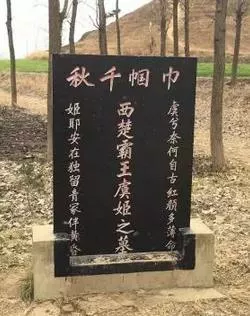 巾帼千秋
虞兮奈何自古红颜多薄命
西楚霸王虞姬之墓
姬耶安在独留青冢伴黄昏